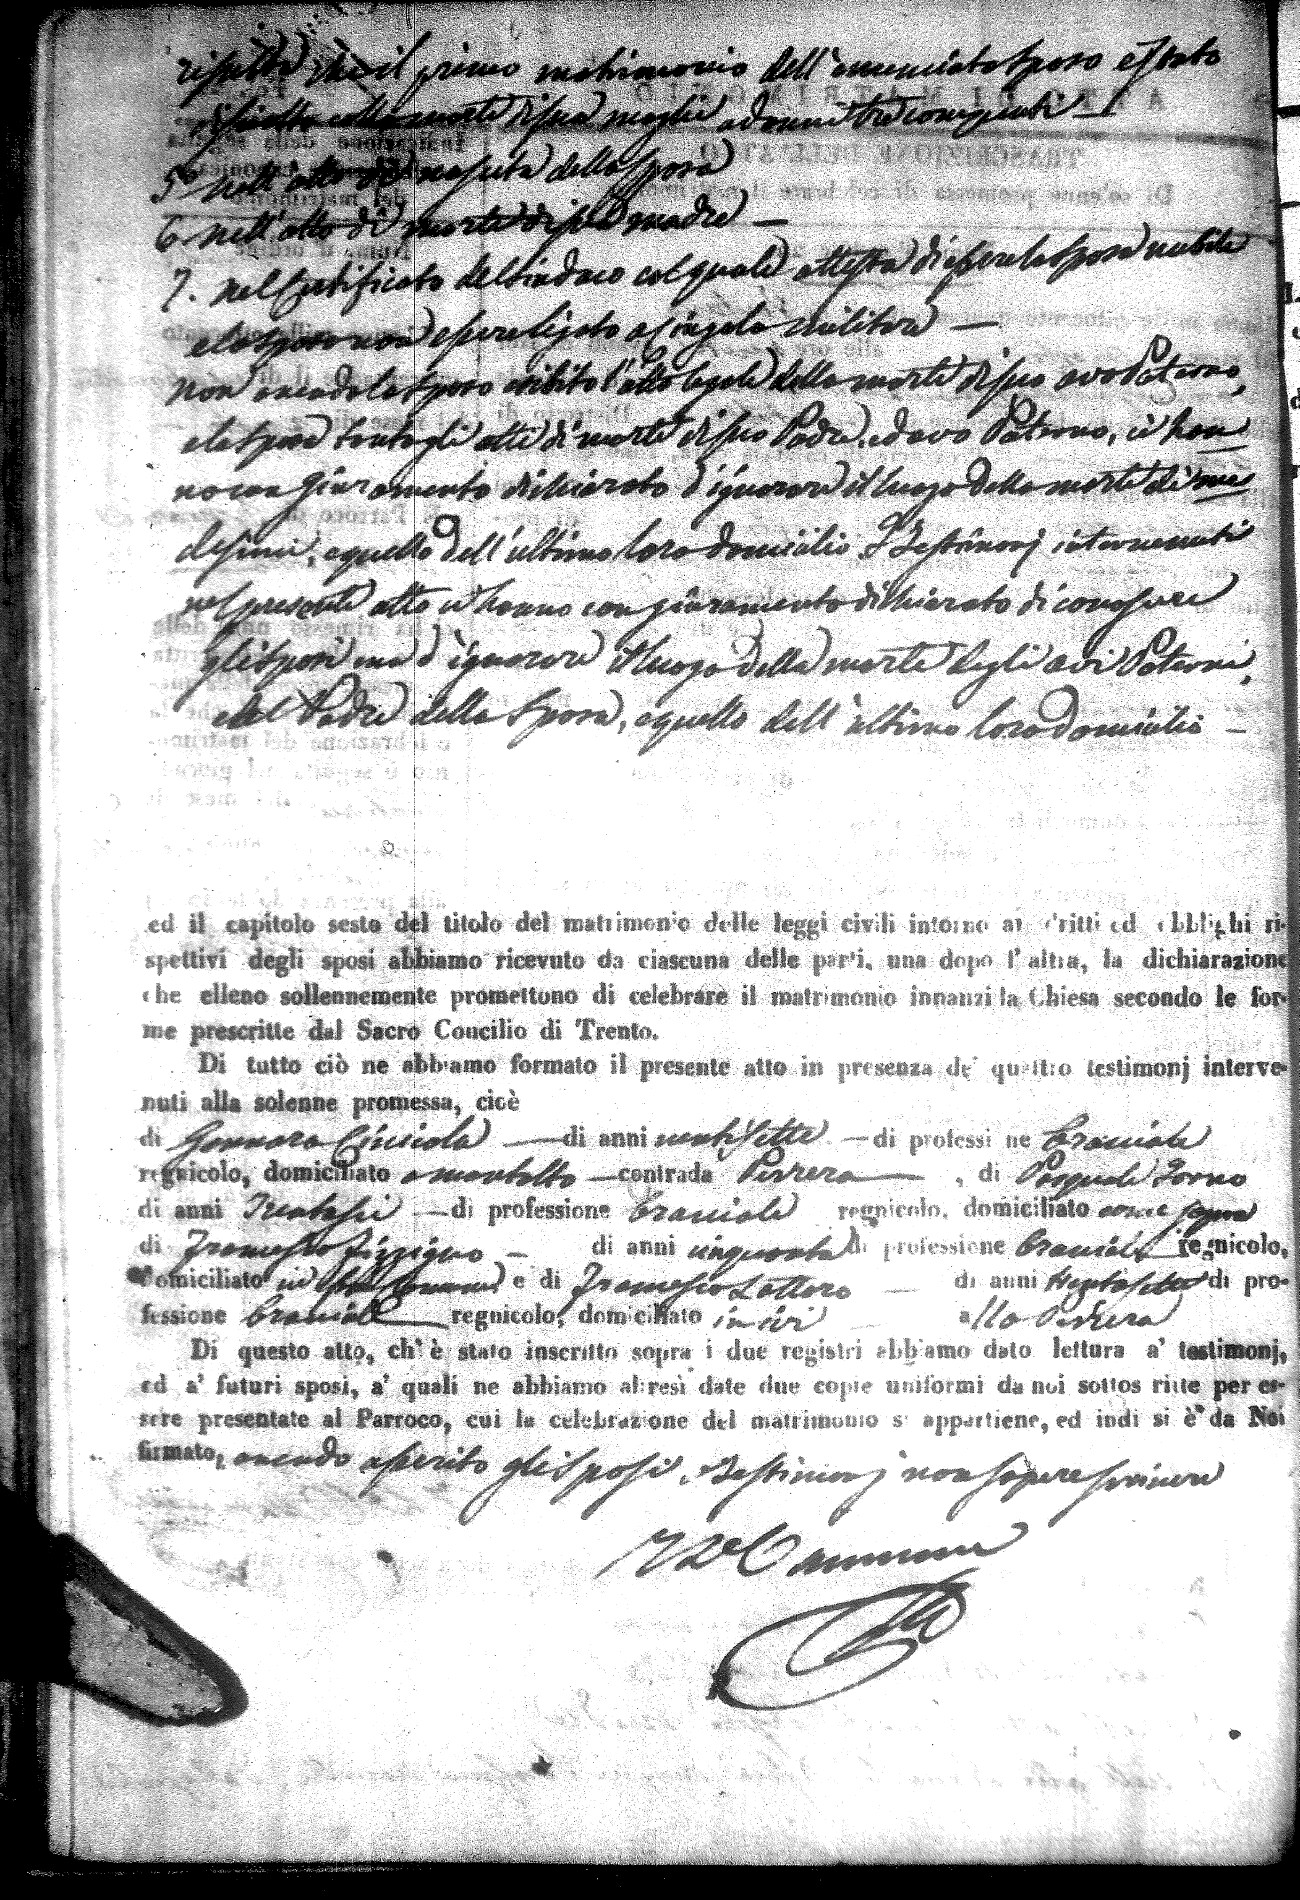 risulta che il primo matrimonio dell'enunciato sposo e stato
disciolto colla morte di sua moglie
5 Nell'atto di nascita della sposa
6 nell'atto di morte di sua madre —
7. Nel Certificato del Sindaco col quale attesta di essere la sposa nubile
e lo sposo non essere ligato a Cingolo militare —
Non avendo lo sposo esibito l'atto legale della morte di suo avo Paterno,
e la sposa tanto gli atti di morte di suo Padre, ed avo Paterno, ci han
no con giuramento dichiarato d'ignorare il luogo della morte di mede
desimi, e quello dell'ultimo loro domicilio I Testimonj intervenuti
nel presente atto ci hanno con giuramento dichiarato di conoscere
gli sposi ma d'ignorare il luogo della morte degli avi Paterni,
e del Padre della Sposa, e quello dell'ultimo loro domicilio —
ed il capitolo sesto del titolo del matrimonio delle leggi civili intorno ai dritti ed obblighi ri-
spettivi degli sposi abbiamo ricevuto da ciascuna delle parti, una dopo l'altra, la dichiarazione
che elleno sollennemente promettono di celebrare il matrimonio innanzi la Chiesa secondo le for-
me prescritte dal Sacro Concilio di Trento.
Di tutto ciò ne abbiamo formato il presente atto in presenza de' quattro testimonj interve-
nuti alla solenne promessa, cioè
di Gennaro — di anni ventisette — di professione Bracciale
regnicolo, domiciliato a Montalto — contrada Perrera —, di Pasquale
di anni Trentasei — di professione Bracciale regnicolo, domiciliato come sopra
di Francesco — di anni cinquanta di professione Bracciale regnicolo,
domiciliato in e di Francesco Lattaro — di anni di pro-
fessione Bracciale regnicolo, domiciliato in ivi alla Perrera
Di questo atto, ch'è stato inscritto sopra i due registri abbiamo dato lettura a' testimonj,
ed a' futuri sposi, a' quali ne abbiamo altresì date due copie uniformi da noi sottoscritte per es-
sere presentate al Parroco, cui la celebrazione del matrimonio s'appartiene, ed indi si è da Noi
firmato, avendo asserito gli sposi, e Testimonj non sapere scrivere